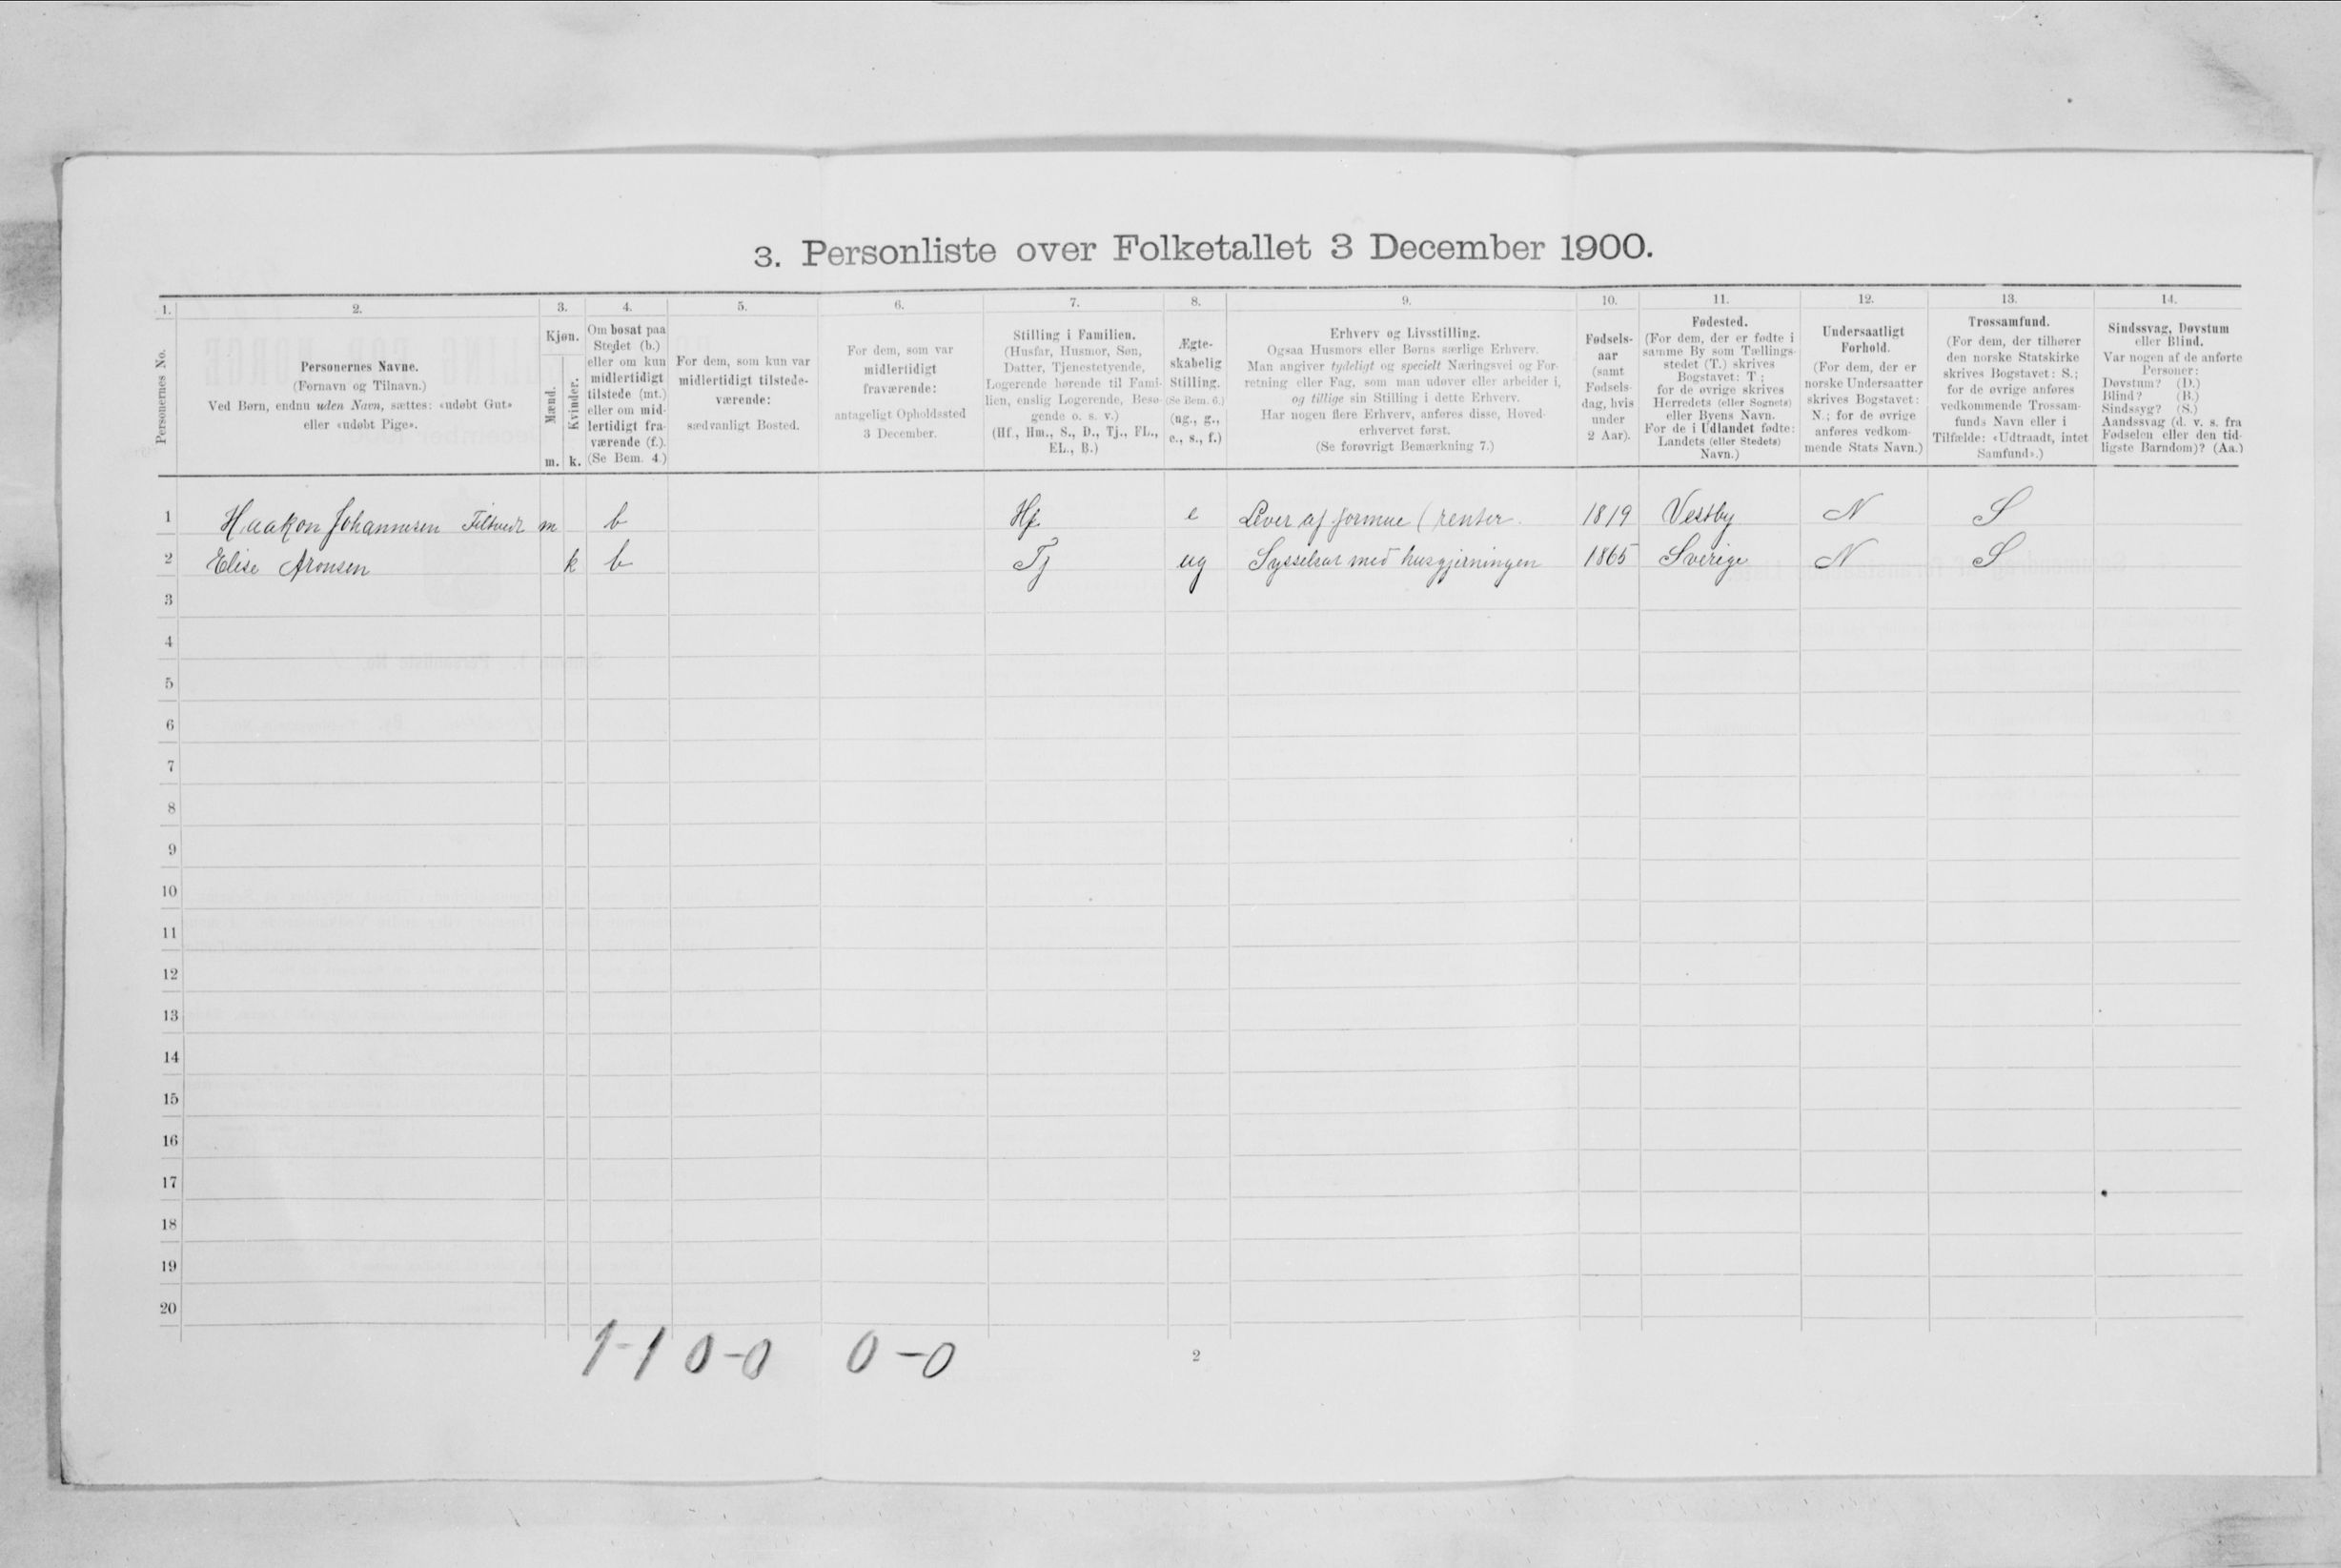 3. Personliste over Folketallet 3 December 1900.
1. 2. 3. 4. 5. 6. 7. 8. 9. 10. 11. 12. 13. 14.
Personernes No.
Personernes Navne.
(Fornavn og Tilnavn.)
Ved Børn, endnu uden Navn, sættes: «udøbt Gut»
eller «udøbt Pige».
Kjøn.
Mænd.
m.
Kvinder.
k.
Om bosat paa
Stedet (b.)
eller om kun
midlertidigt
tilstede (mt.)
eller om mid-
lertidigt fra-
værende (f.).
(Se Bem. 4.)
For dem, som kun var
midlertidigt tilstede-
værende:
sædvanligt Bosted.
For dem, som var
midlertidigt
fraværende:
antageligt Opholdssted
3 December.
Stilling i Familien.
(Husfar, Husmor, Søn,
Datter, Tjenestetyende,
Logerende hørende til Fami-
lien, enslig Logerende, Besø-
gende o. s. v.)
(Hf., Hm., S., D., Tj., FL.,
EL., B.)
Ægte-
skabelig
Stilling.
(Se Bem. 6.)
(ug., g.,
e., s., f.)
Erhverv og Livsstilling.
Ogsaa Husmors eller Børns særlige Erhverv.
Man angiver tydeligt og specielt Næringsvei og For-
retning eller Fag, som man udøver eller arbeider i,
og tillige sin Stilling i dette Erhverv.
Har nogen flere Erhverv, anføres disse, Hoved-
erhvervet først.
(Se forøvrigt Bemærkning 7.)
Fødsels-
aar
(samt
Fødsels-
dag, hvis
under
2 Aar).
Fødested.
(For dem, der er fødte i
samme By som Tællings-
stedet (T.) skrives
Bogstavet: T ;
for de øvrige skrives
Herredets (eller Sognets)
eller Byens Navn.
For de i Udlandet fødte:
Landets (eller Stedets)
Navn.)
Undersaatligt
Forhold.
(For dem, der er
norske Undersaatter
skrives Bogstavet:
N.; for de øvrige
anføres vedkom-
mende Stats Navn.)
Trossamfund.
(For dem, der tilhører
den norske Statskirke
skrives Bogstavet: S.;
for de øvrige anføres
vedkommende Trossam-
funds Navn eller i
Tilfælde: «Udtraadt, intet
Samfund».)
Sindssvag, Døvstum
eller Blind.
Var nogen af de anførte
Personer:
Døvstum? (D.)
Blind? (B.)
Sindssyg? (S.)
Aandssvag (d. v. s. fra
Fødselen eller den tid-
ligste Barndom)? (Aa.)
1 Haakon Johannesen m b Hf e Lever af formue (renter. 1819 Vestby N S
2 Elise Aronsen k b Tj ug Sysselsat med husgjerningen 1865 Sverige N S
3
4
5
6
7
8
9
10
11
12
13
14
15
16
17
18
19
20
1-1 0-0 0-0
2